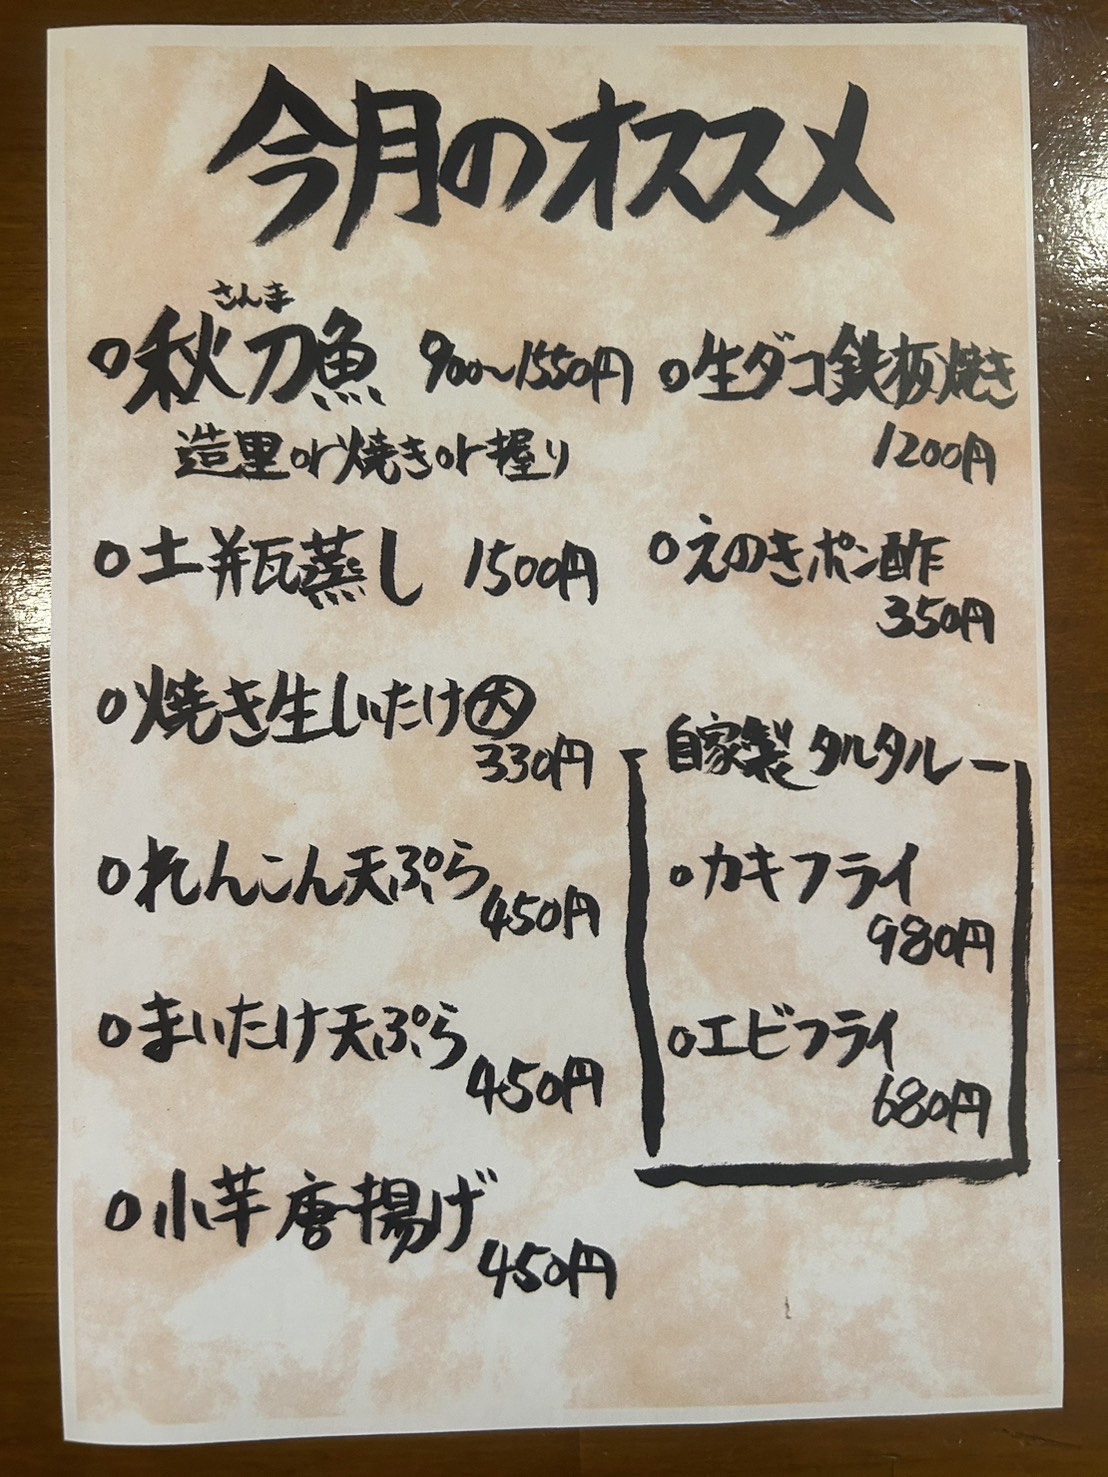 今月のオススメ
さんま
○秋刀魚 900〜1550円
造里or焼きor握り
○土瓶蒸し 1500円
○焼き生しいたけ大
330円
○れんこん天ぷら
450円
○まいたけ天ぷら
450円
○小芋唐揚げ
450円
○生ダコ鉄板焼き
1200円
○えのきポン酢
350円
自家製タルタル
○カキフライ
980円
○エビフライ
680円